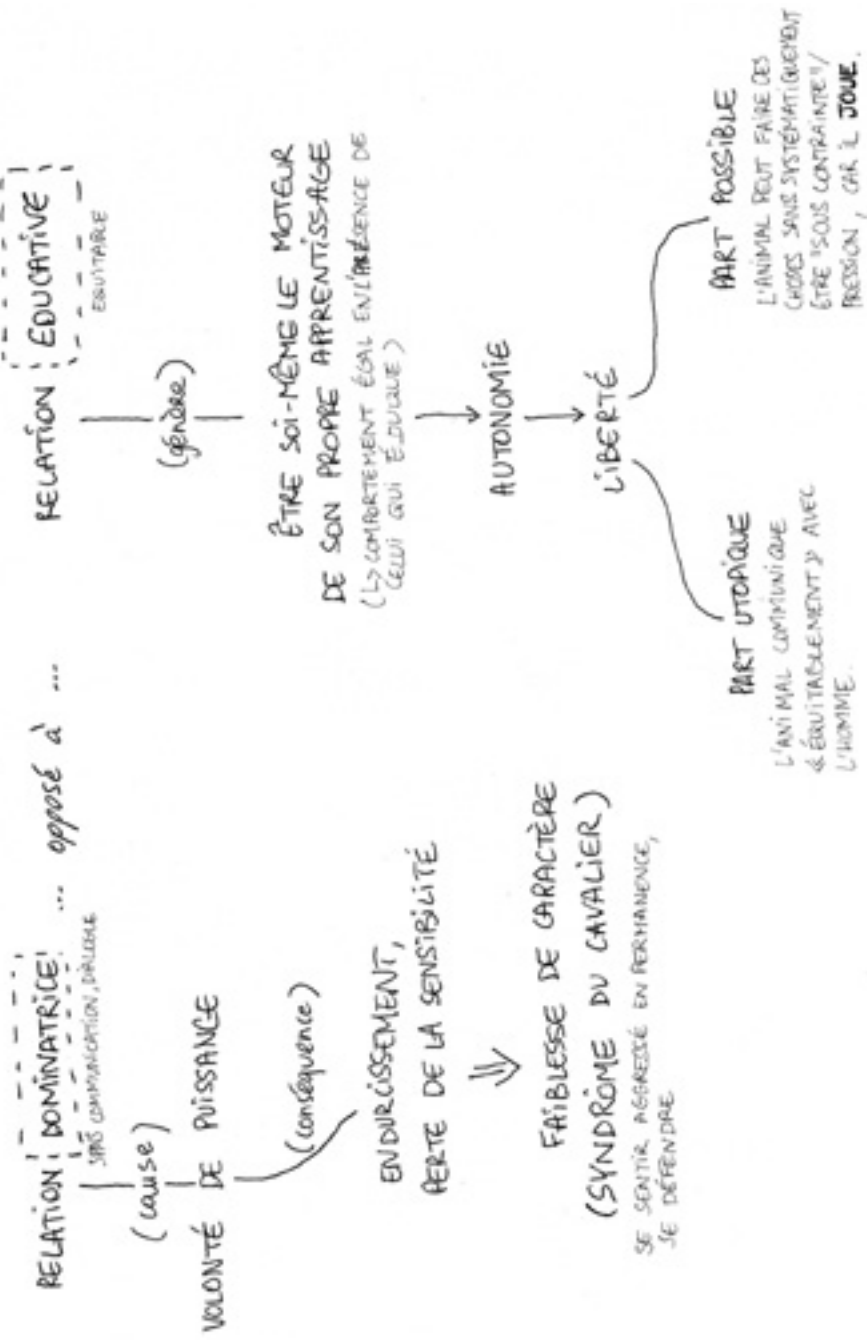 RELATION DOMINATRICE
SANS COMMUNICATION, DIALOGUE
(cause)
VOLONTÉ DE PUISSANCE
(conséquence)
ENDURCISSEMENT,
PERTE DE LA SENSIBILITÉ
FAIBLESSE DE CARACTÈRE
(SYNDRÔME DU CAVALIER)
SE SENTIR AGGRESSÉ EN PERMANENCE,
SE DÉFENDRE
... opposé à ...
RELATION ÉDUCATIVE
EQUITABLE
(génère)
ÊTRE SOI-MÊME LE MOTEUR
DE SON PROPRE APPRENTISSAGE
(↳ COMPORTEMENT ÉGAL EN L'ABSENCE DE
CELUI QUI ÉDUQUE)
AUTONOMIE
LIBERTÉ
PART UTOPIQUE
L'ANIMAL COMMUNIQUE
« ÉQUITABLEMENT » AVEC
L'HOMME.
PART POSSIBLE
L'ANIMAL PEUT FAIRE DES
CHOSES SANS SYSTÉMATIQUEMENT
ÊTRE "SOUS CONTRAINTE"/
PRESSION, CAR IL JOUE.